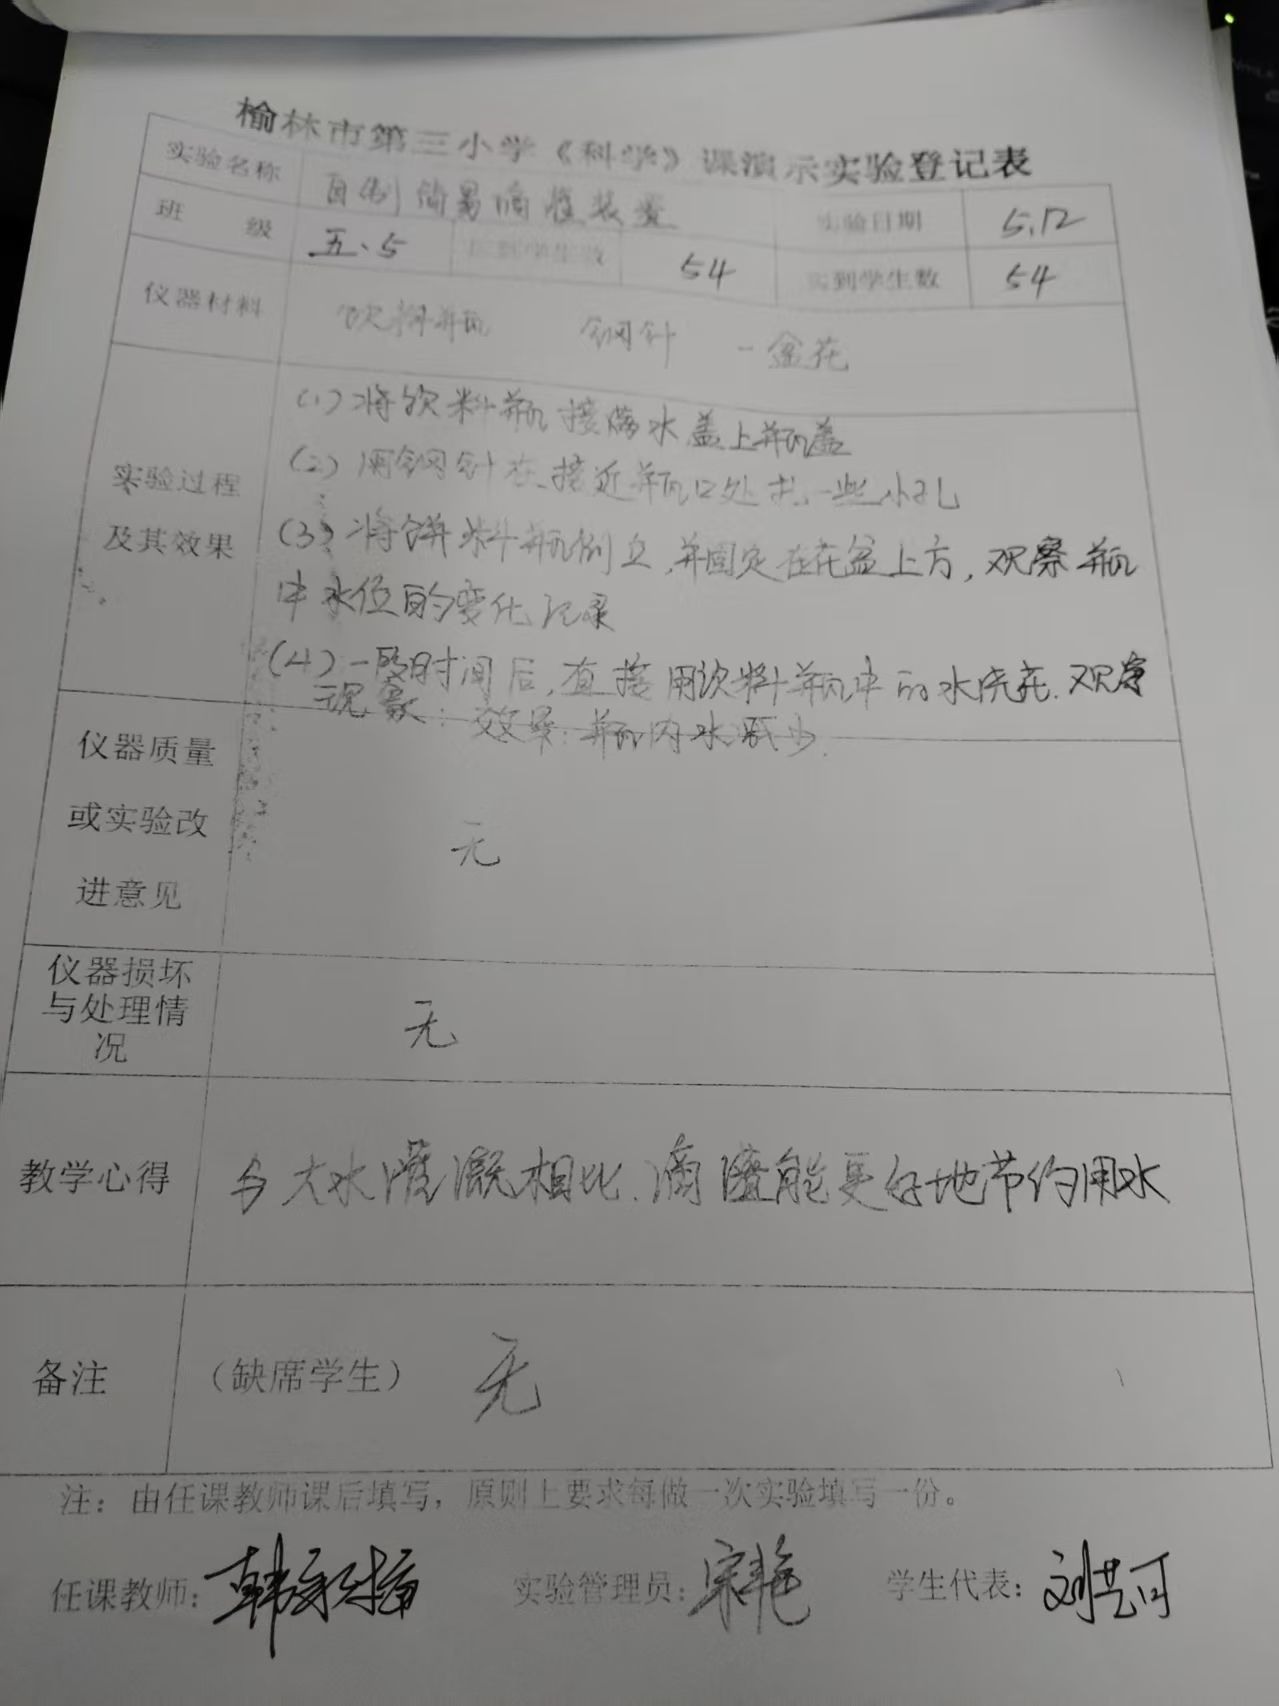 榆林市第三小学《科学》课演示实验登记表
实验名称 自制简易滴灌装置 实验日期 5.12
班 级 五.5 应到学生数 54 实到学生数 54
仪器材料 饮料瓶 钢针 一盆花
实验过程
及其效果
(1)将饮料瓶接满水盖上瓶盖
(2)用钢针在接近瓶口处扎一些小孔
(3)将饮料瓶倒立,并固定在花盆上方,观察瓶
中水位的变化记录
(4)一段时间后,直接用饮料瓶中的水浇花.观察
现象:效果:瓶内水减少.
仪器质量
或实验改
进意见
无
仪器损坏
与处理情
况
无
教学心得 与大水灌溉相比.滴灌能更好地节约用水
备注 (缺席学生) 无
注:由任课教师课后填写,原则上要求每做一次实验填写一份。
任课教师: 实验管理员:宋艳 学生代表:刘芸可